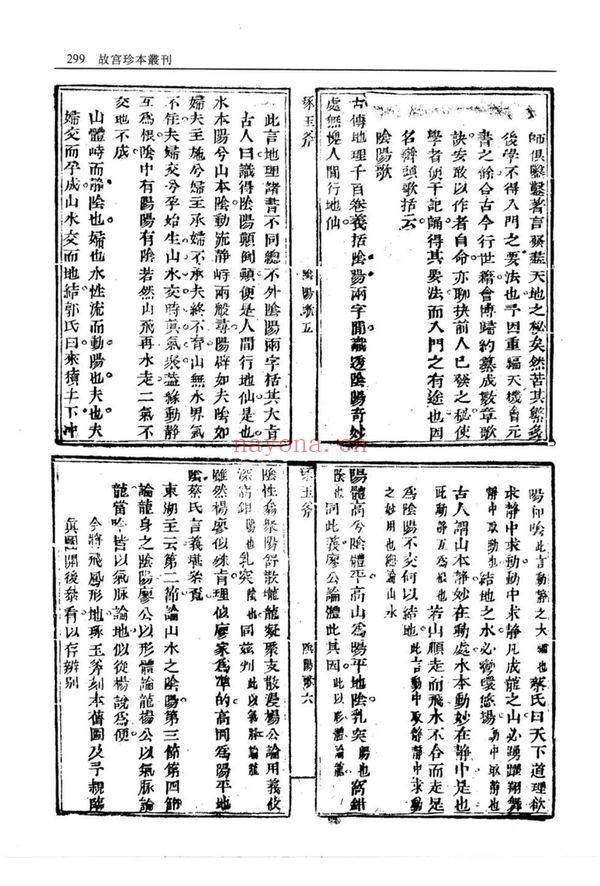 299 故宮珍本叢刊
師俱繫著言發蓋天地之秘矣然苦其繁多
後學不得入門之要法也予因重編天機會元
書之餘合古今行世諸會博歸約纂成數章歌
訣安敢以作者自命亦聊抉前人已發之秘使
學者便于記誦得其要法而入門之有途也因
名辯頭歌括云
陰陽歌
古傳地理千百卷義括陰陽兩字間識透陰陽奇妙
處無愧人間行地仙
琢玉斧 陰陽歌五
此言地理諸書不同總不外陰陽兩字括其大旨
古人曰識得陰陽顛倒顛便是人間行地仙是也
水本陽兮山本陰動流靜峙兩般尋陽辟如夫陰如
婦夫主施兮婦主承婦不承夫終不育山無水界氣
不住夫婦交兮孕始生山水交時真氣聚蓋緣動靜
互為根陰中有陽陽有陰若然山飛再水走二氣不
交地不成
山體峙而靜陰也婦也水性流而動陽也夫也夫
婦交而孕成山水交而地結郭氏曰來積止下冲
陽和陰此言動靜之大端也蔡氏曰天下道理欲
求靜中求動動中求靜凡成龍之山必踴躍翔舞
靜中取動也結地之水必灣環悠揚動中取靜也
古人謂山本靜妙在動處水本動妙在靜中是也
此動靜互為根也若山顛走而飛水不合而走是
為陰陽不交何以結地此言動中取靜靜中取動
之妙用也總論山水
陽體高兮陰體平高山為陽平地陰乳突陽也窩鉗
陰也同此義廖公論體此其因此以形體論龍
琢玉斧 陰陽歌六
陰性翕聚陽舒散壠龍凝聚支散漫楊公論用義攸
深窩鉗陽也乳突陰也同茲判此以氣脈論龍
雖然楊廖似殊肯理似廖家為準的高岡為陽平地
陰蔡氏言義堪榮覔
東湖王云第二節論山水之陰陽第三節第四節
論龍身之陰陽廖公以形體論龍楊公以氣脈論
龍當時皆以氣脈論地似從楊說為便
今將飛鳳形地琢玉斧刻本舊圖及予親臨
真圖開後叅看以存辨別
nayona.cn